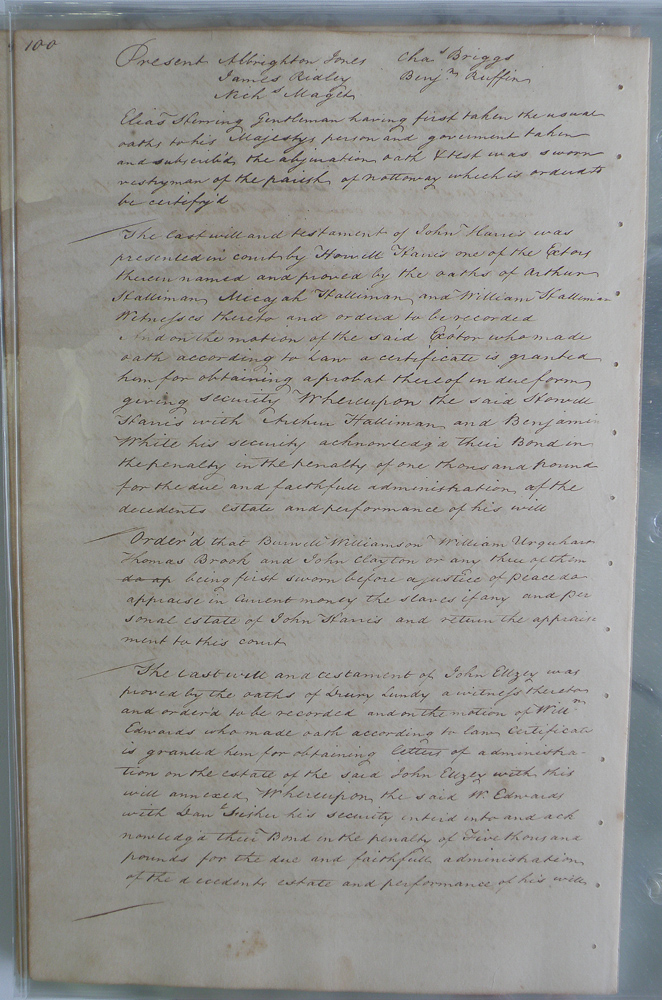 100
Present Albrighton Jones Chas Briggs
James Ridley Benjn Ruffin
Nichs Maget
Elias Herring Gentleman having first taken the usual
oaths to his Majestys person and goverment taken
and subscribed the abjuration oath & test was sworn
vestryman of the parish of nottoway which is orderd to
be certify'd
The last will and testament of John Harris was
presented in court by Howell Harris one of the Extors
therein named and proved by the oaths of Arthur
Halliman, Micajah Halliman, and William Halliman
Witnesses thereto and orderd to be recorded
And on the motion of the said Exo'tor who made
oath according to Law a certificate is granted
him for obtaining a probat thereof in due form
giving security Whereupon the said Howell
Harris with Arthur Halliman and Benjamin
White his security acknowledg'd their Bond in
the penalty in the penalty of one thousand pound
for the due and faithfull administration of the
decedents estate and performance of his will
Order'd that Burwell Williamson William Urquhart
Thomas Brook and John Clayton or any three of them
do ap being first sworn before a justice of peace do
appraise in Current money the slaves if any and per
sonal estate of John Harris and return the appraise
ment to this court
The last will and testament of John Ellzey was
proved by the oaths of Drury Lundy a witness thereto
and order'd to be recorded and on the motion of Willm
Edwards who made oath according to law Certificate
is granted him for obtaining letters of administra-
tion on the estate of the said John Ellzey with this
will annexed, Whereupon the said W Edwards
with Danl Fisher his security enterd into and ack
nowledg'd their Bond in the penalty of Five thousand
pounds for the due and faithfull administration
of the decedents estate and performance of his will